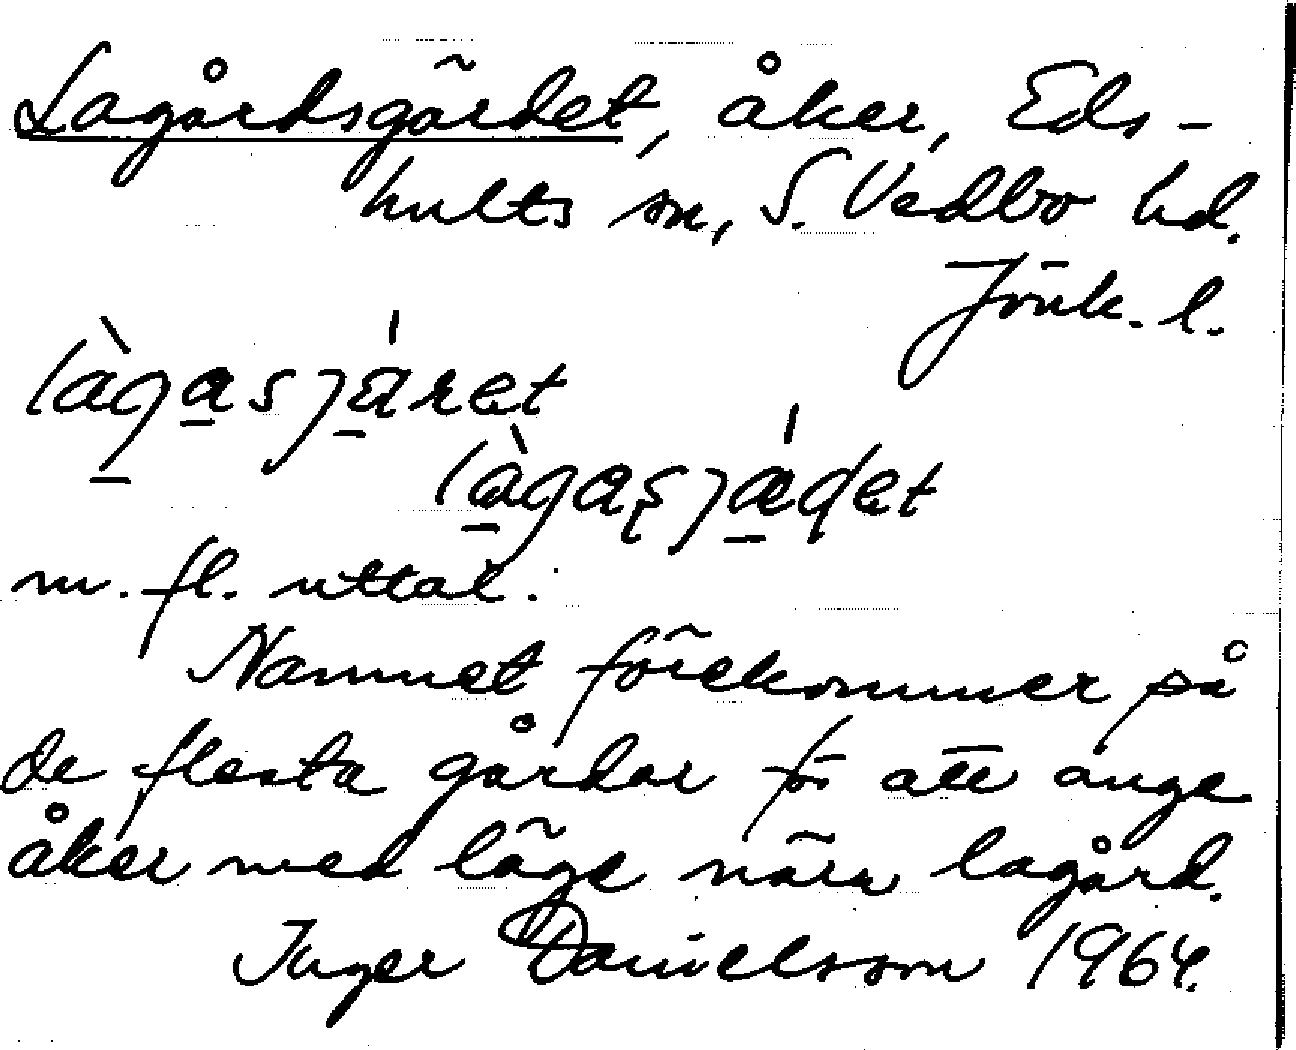 Lagårdsgärdet, åker, Eds-
hults sn, S. Vedbo hd.
Jönk. l.
làgasjäret
làgasjädet
m. fl. uttal.
Namnet förekommer på
de flesta gårdar för att ange
åker med läge nära lagård.
Inger Danielsson 1964.